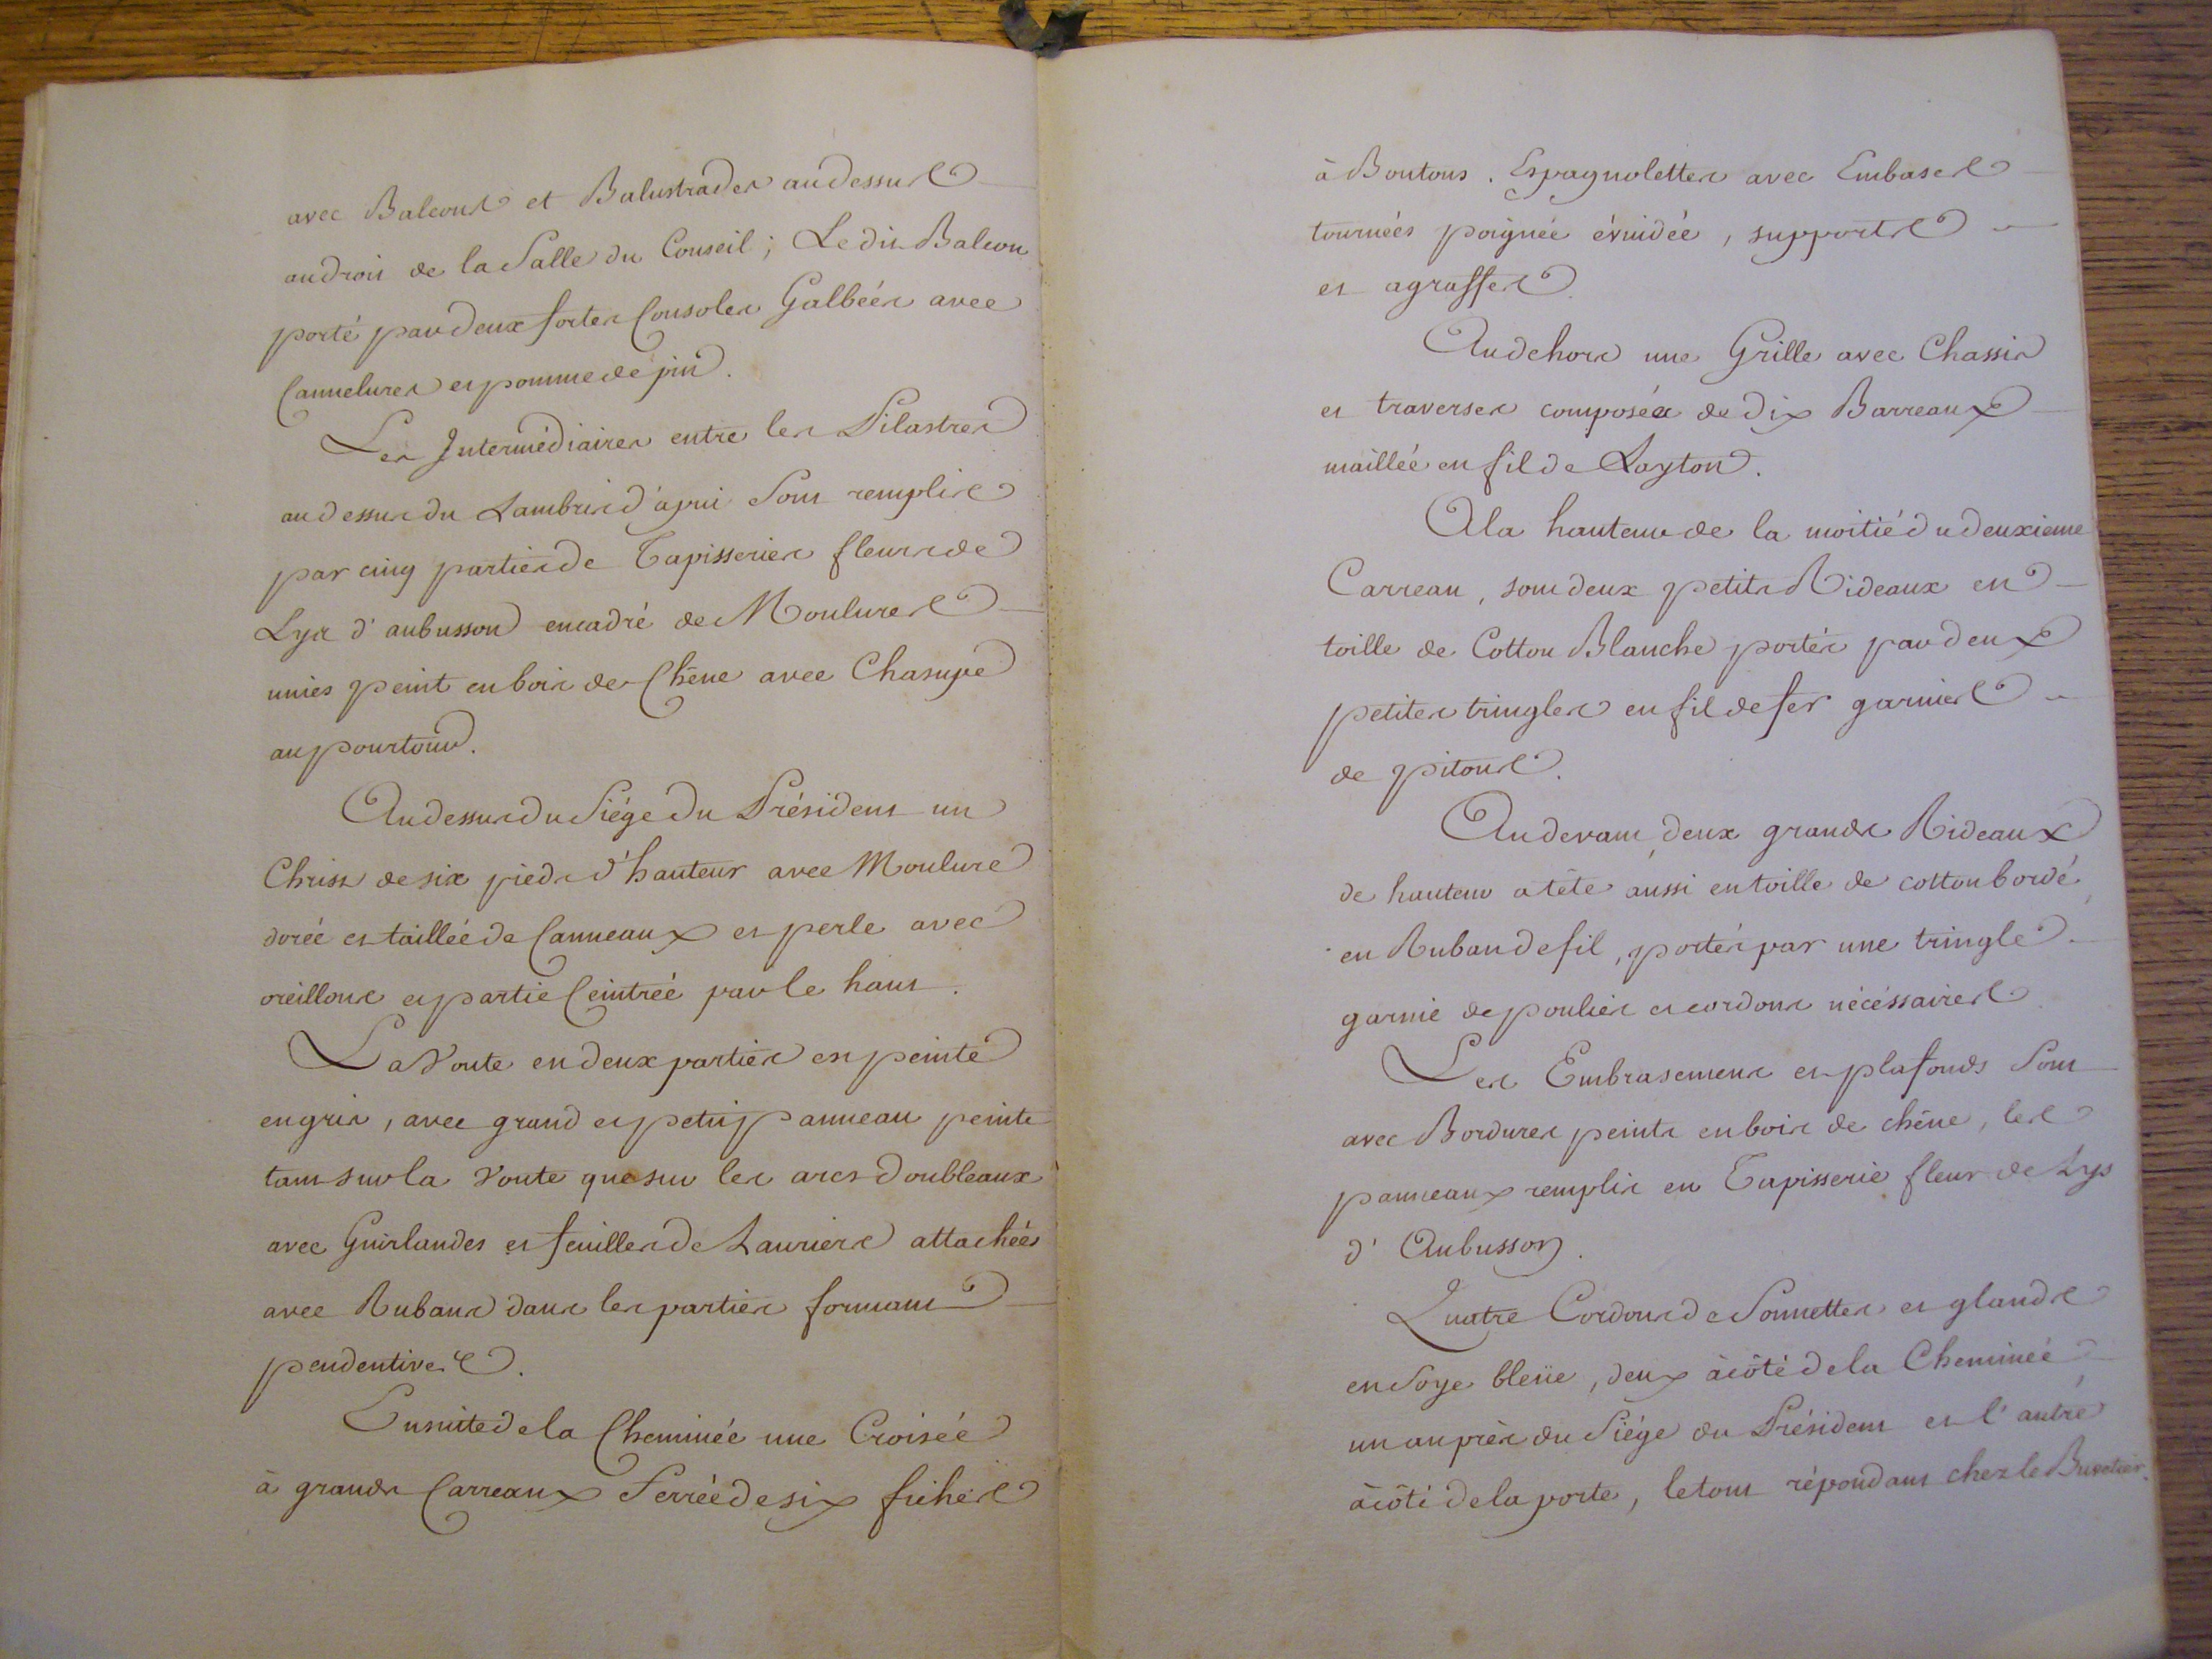 avec Balcons et Balustrades audessus
audroit de la Salle du Conseil ; Ledit Balcon
porté par deux fortes Consoles Galbées avec
Cannelures et pomme de pin.
Les Intermédiaires entre les Pilastres
audessus du Lambris d'apui Sont remplis
par cinq parties de Tapisseries fleurs de
Lys d'aubusson encadré de Moulures
unies peint en bois de Chêne avec
au pourtour.
Audessus du Siége du Président un
Christ de six pieds d'hauteur avec Moulure
dorée et taillée de Canneaux et perle avec
oreillons et partie Ceintrée par le haut.
La Voute en deux parties est peinte
en gris, avec grand et petit panneau peints
tant sur la Voute que sur les arcs Doubleaux
avec Guirlandes et feuilles de Lauriers attachées
avec Rubans dans les parties formant
pendentives.
Ensuite de la Cheminée une Croisée
à grands Carreaux Ferrée de six fiches
à Boutons. Espagnolettes avec Embases
tournées poignée évuidée, supports
et agraffes.
Audehors une Grille avec Chassis
et traverses composée de dix Barreaux
maillée en fil de Layton.
A la hauteur de la moitié du deuxieme
Carreau, sont deux petits Rideaux en
toille de Cotton Blanche portés par deux
petites tringles en fil de fer garnies
de pitons.
Audevant deux grands Rideaux
de hauteur a tête aussi en toille de cotton bordé
en Ruban de fil, portés par une tringle
garnie de poulies et cordons nécéssaires
Les Embrasemens et plafonds Sont
avec Bordures peints en bois de chêne, les
panneaux remplis en Tapisserie fleur de Lys
d'Aubusson.
Quatre Cordons de Sonnettes et glands
en Soye bleüe, deux àcôté de la Cheminée
un auprès du Siége du Président et l'autre
àcôté de la porte, le tout répondant chez le Buvetier.